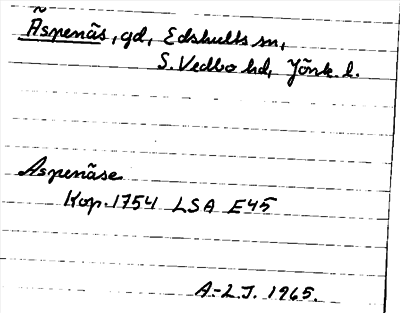 Äspenäs, gd, Edshults sn,
S. Vedbo hd, Jönk. l.
Aspenäse
Kop. 1754 LSA E45
A.-L.J. 1965.